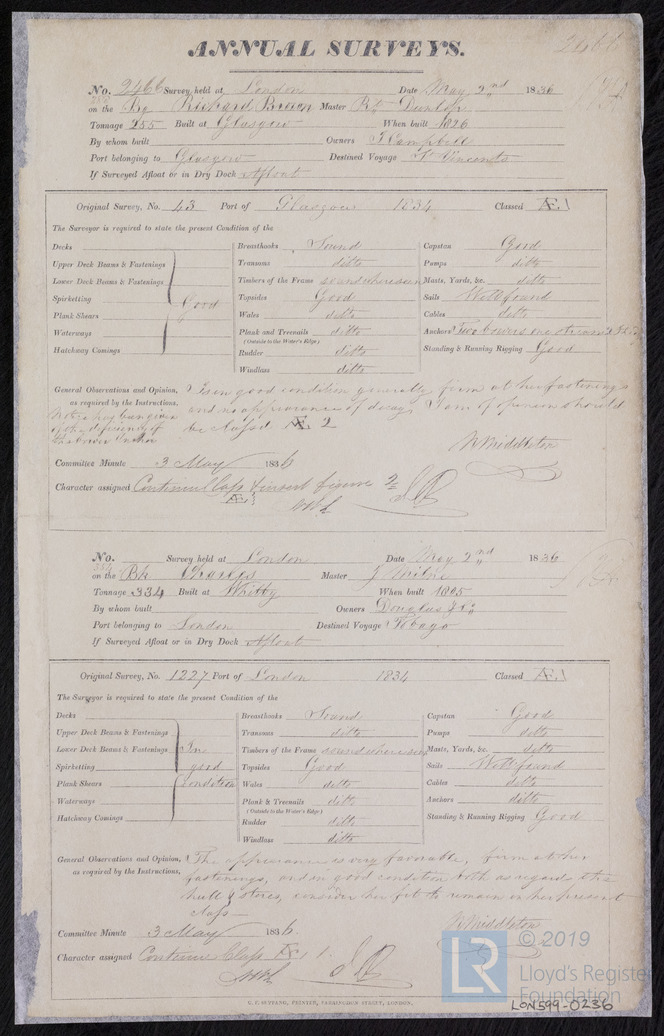 2466
ANNUAL SURVEYS.
No. 2466 Survey held at London Date May 2nd 1836
on the Bg Richard Brown Master Rt Dunlop
Tonnage 255 Built at Glasgow When built 1826
By whom built Owners T Campbell
Port belonging to Glasgow Destined Voyage St Vincents
If Surveyed Afloat or in Dry Dock Afloat
Original Survey, No. 43 Port of Glasgow 1834 Classed Æ.1
The Surveyor is required to state the present Condition of the
Decks Breasthooks Sound Capstan Good
Upper Deck Beams & Fastenings Transoms ditto Pumps ditto
Lower Deck Beams & Fastenings Timbers of the Frame sound where seen Masts, Yards, &c. ditto
Spirketting Good Topsides Good Sails Well found
Plank Shears Wales ditto Cables ditto
Waterways Plank and Treenails ditto Anchors Two bowers one stream
(Outside to the Water's Edge)
Hatchway Comings Rudder ditto Standing & Running Rigging Good
Windlass ditto
General Observations and Opinion, Is in good condition generally, firm at her fastenings
as required by the Instructions, and no appearance of decay, I am of opinion should
be Classed Æ 2
Notice has been given
of the deficiency of
the bower Anchor
W Middleton
Committee Minute 3 May 1836
Character assigned Continue Class & insert figure 2
Æ 1
No. Survey held at London Date May 2nd 1836
334
on the Bk Charles Master J Milne
Tonnage 334 Built at Whitby When built 1805
By whom built Owners Douglas & Co
Port belonging to London Destined Voyage Tobago
If Surveyed Afloat or in Dry Dock Afloat
Original Survey, No. 1227 Port of London 1834 Classed Æ.1
The Surveyor is required to state the present Condition of the
Decks Breasthooks Sound Capstan Good
Upper Deck Beams & Fastenings Transoms ditto Pumps ditto
Lower Deck Beams & Fastenings In Timbers of the Frame sound where seen Masts, Yards, &c. ditto
Spirketting good Topsides Good Sails Well found
Plank Shears condition Wales ditto Cables ditto
Waterways Plank & Treenails ditto Anchors ditto
(Outside to the Water's Edge)
Hatchway Comings Rudder ditto Standing & Running Rigging Good
Windlass ditto
General Observations and Opinion, The appearance is very favorable, firm at her
as required by the Instructions, fastenings, and in good condition both as regards the
hull & stores, consider her fit to remain in her present
Class—
W Middleton
Committee Minute 3 May 1836.
Character assigned Continue Class Æ 1.
C. F. SEYFANG, PRINTER, FARRINGDON STREET, LONDON.
LR
© 2019
Lloyd's Register
Foundation
LON599-0236